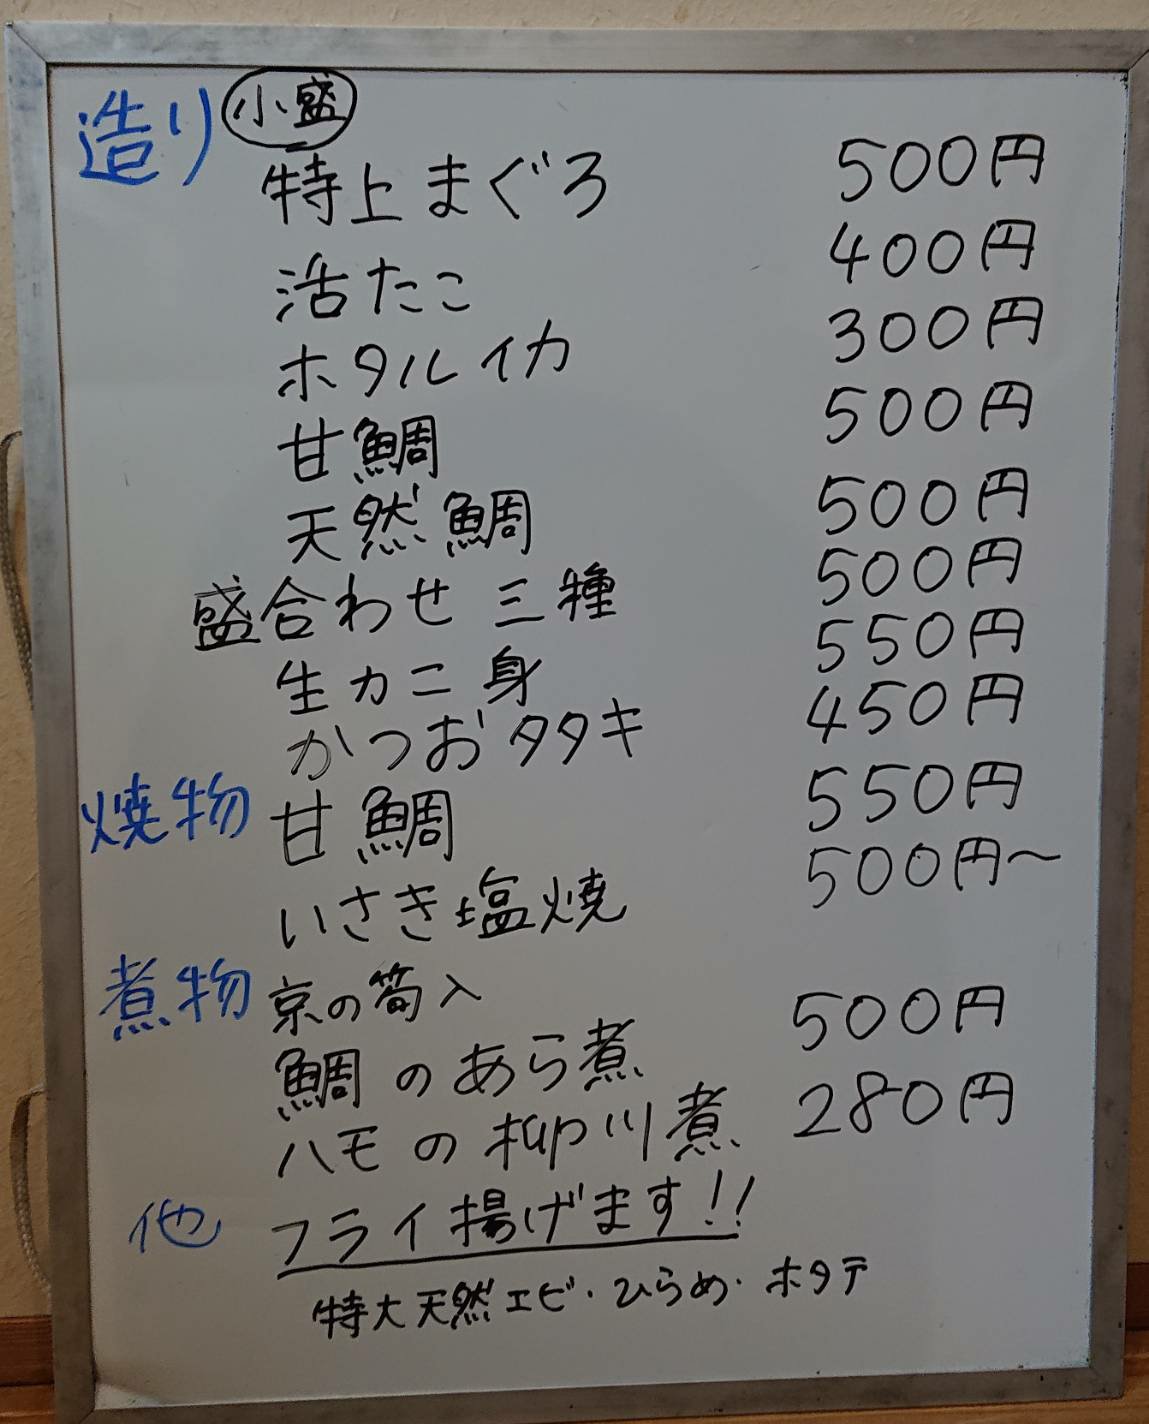 造り 小盛
特上まぐろ 500円
活たこ 400円
ホタルイカ 300円
甘鯛 500円
天然鯛 500円
盛合わせ 三種 500円
生カニ身 550円
かつおタタキ 450円
焼物 甘鯛 550円
いさき塩焼 500円〜
煮物 京の筍入
鯛のあら煮 500円
ハモの柳川煮 280円
他 フライ揚げます!!
特大天然エビ・ひらめ・ホタテ